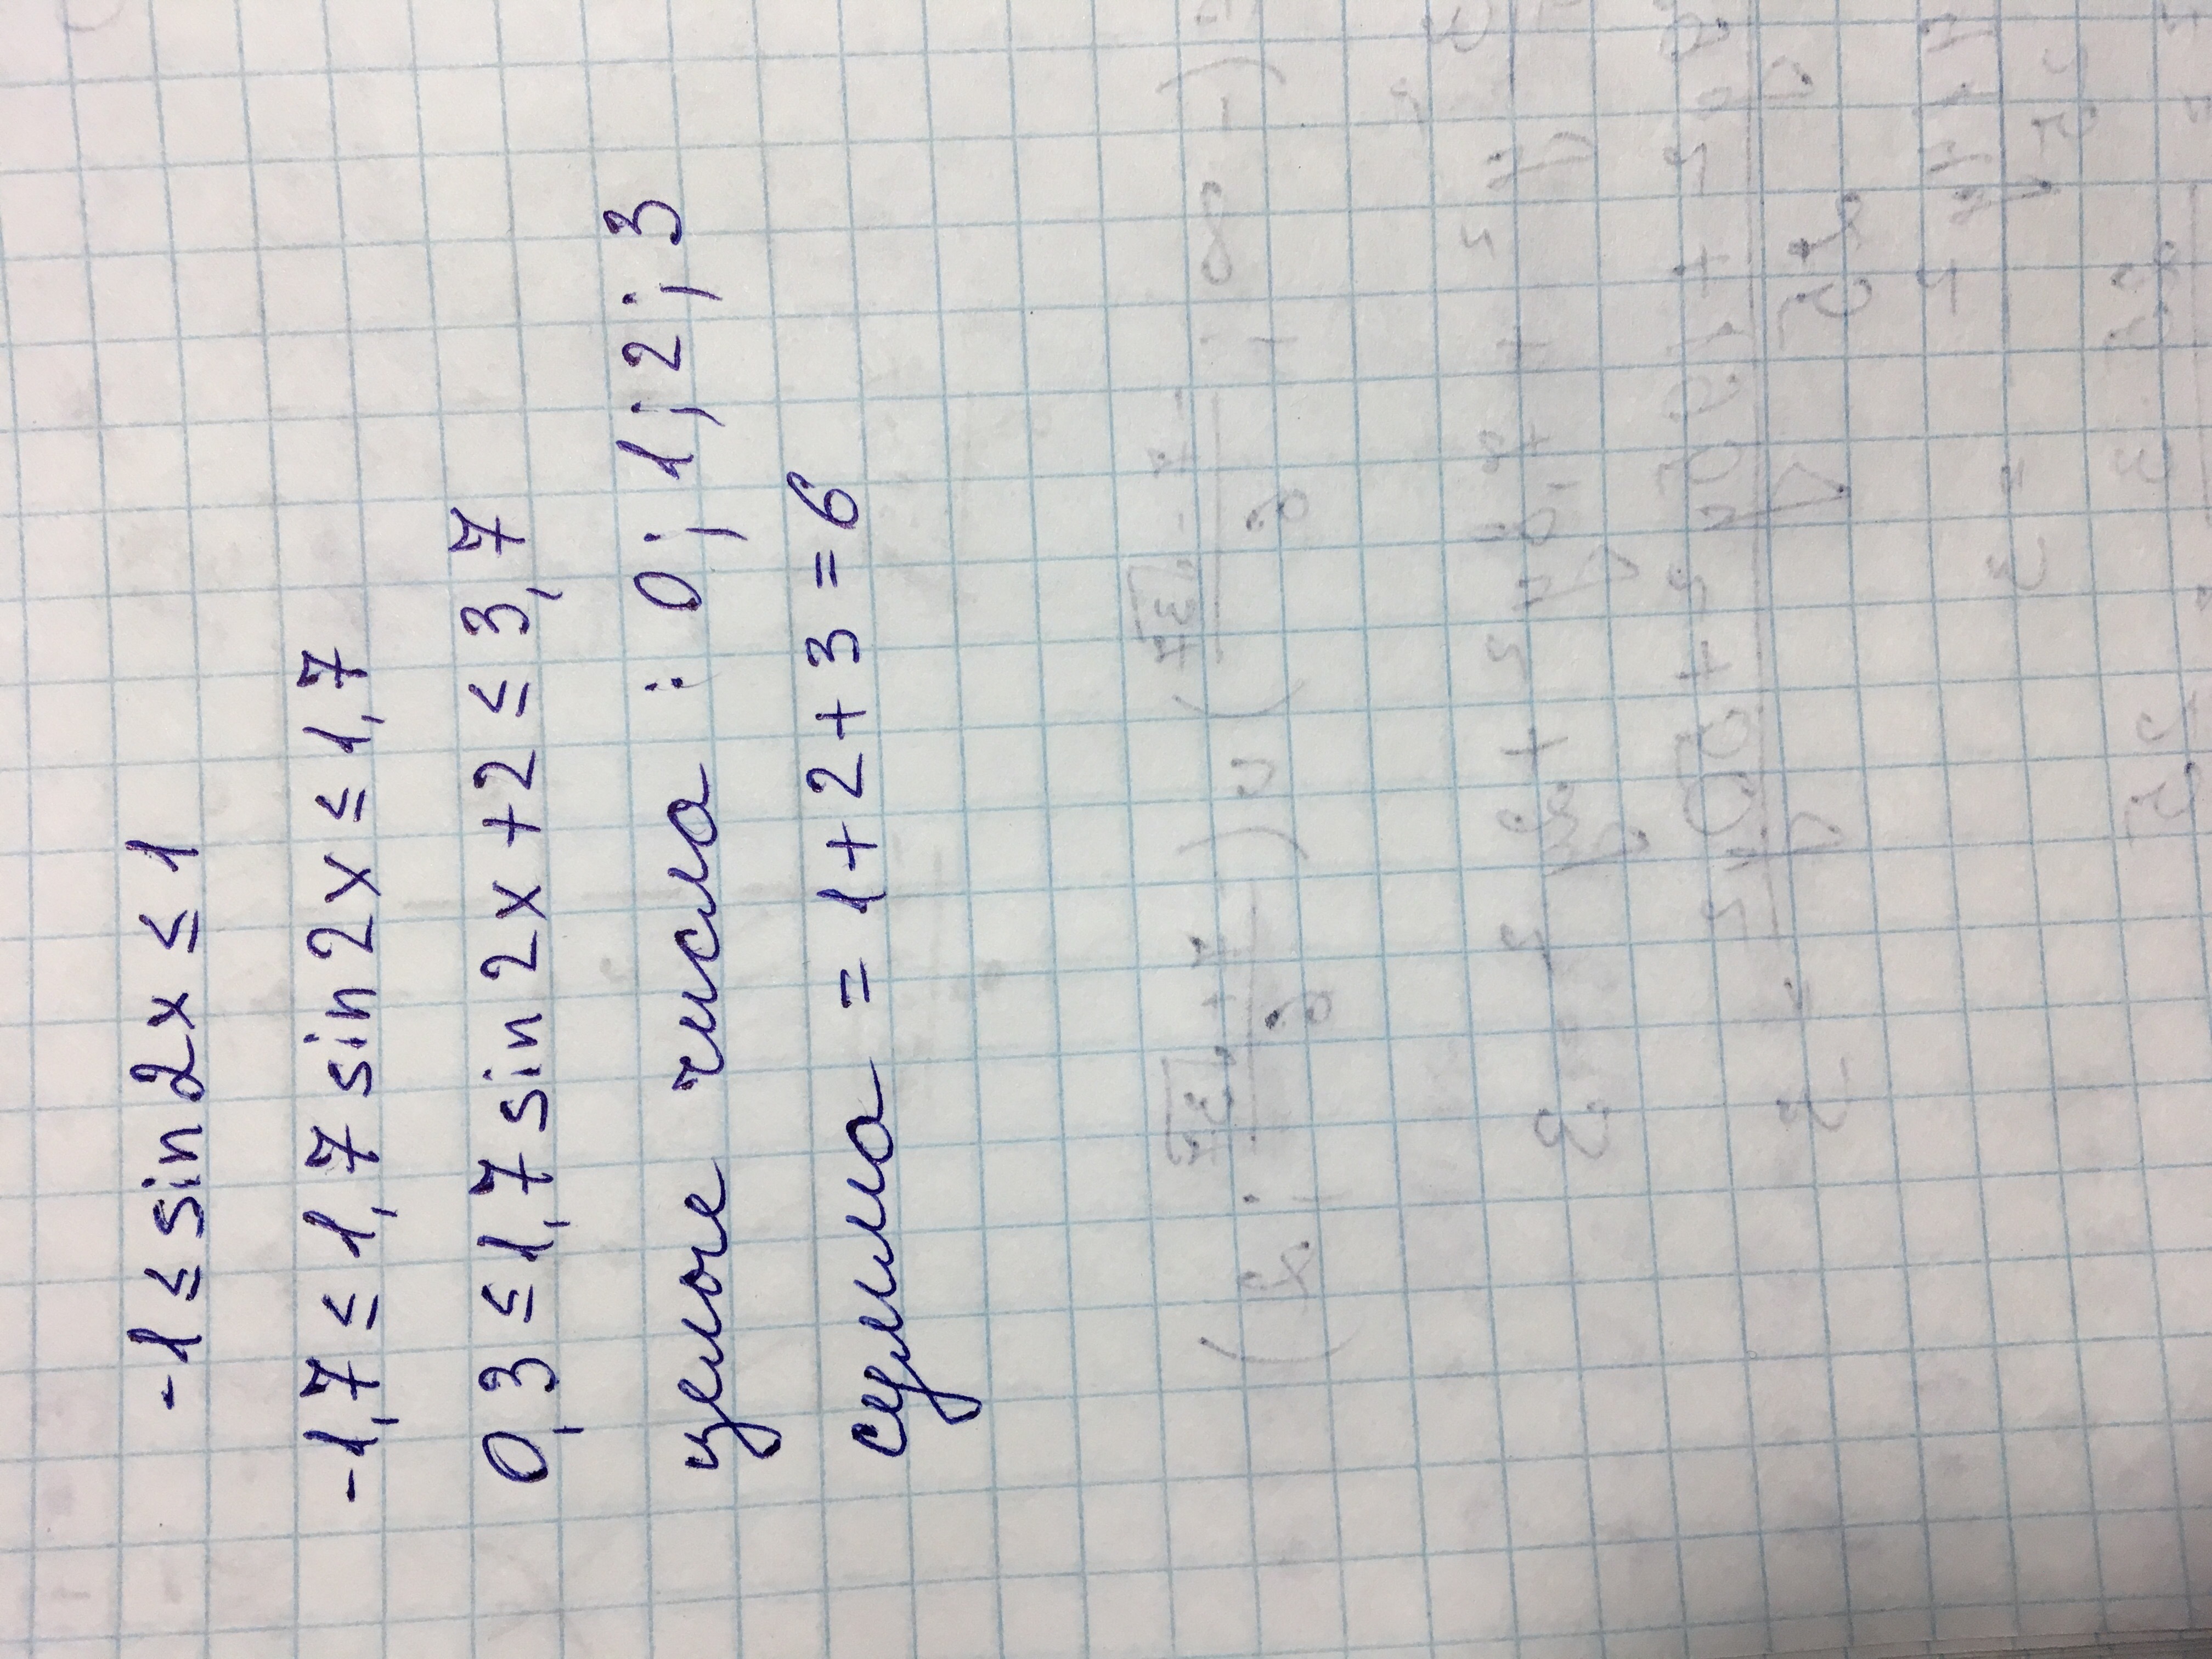 -1 ≤ sin 2x ≤ 1
-1,7 ≤ 1,7 sin 2x ≤ 1,7
0,3 ≤ 1,7 sin 2x + 2 ≤ 3,7
целые числа : 0; 1; 2; 3
сумма = 1 + 2 + 3 = 6